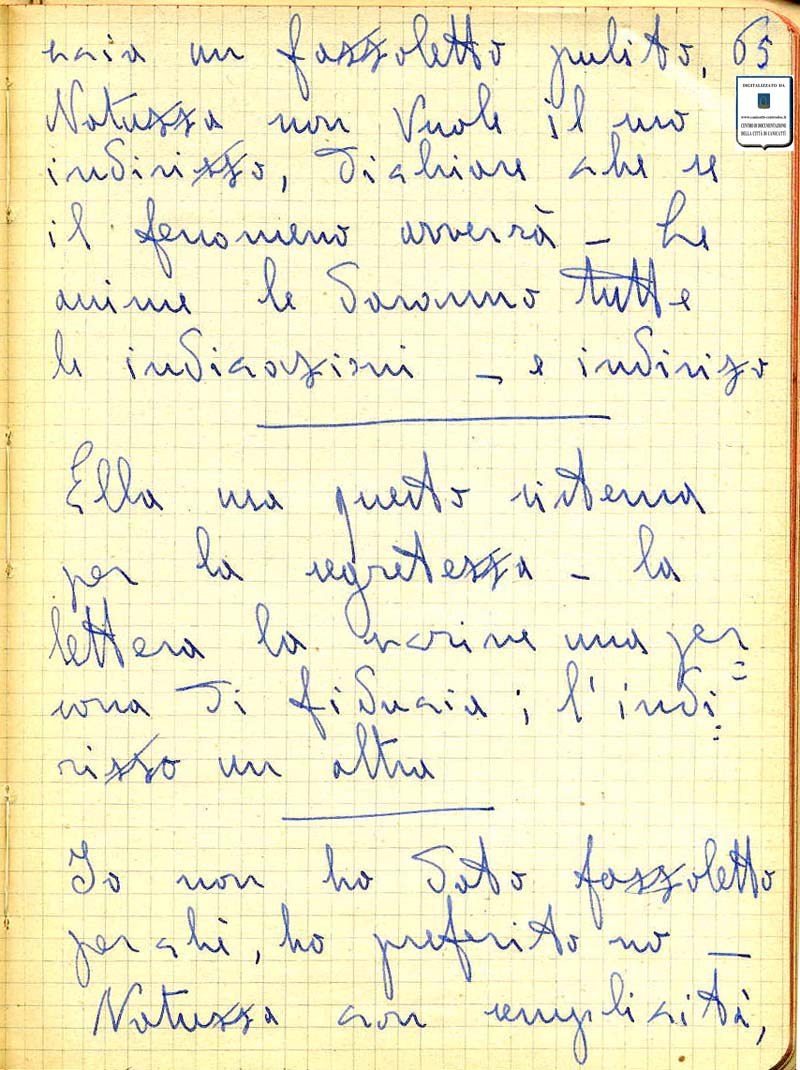 scia un fazzoletto pulito. 65
DIGITALIZZATO DA
CENTRO DI DOCUMENTAZIONE
DELLA CITTÀ DI CANICATTÌ
Natuzza non vuole il suo
indirizzo, dichiara che se
il fenomeno avverrà – Le
anime le daranno tutte
le indicazioni – e indirizo
Ella usa questo sistema
per la segretezza – la
lettera la scrive una per=
sona di fiducia; l'indi=
rizzo un altra
Io non ho dato fazzoletto
perchè, ho preferito no –
Natuzza con semplicità,